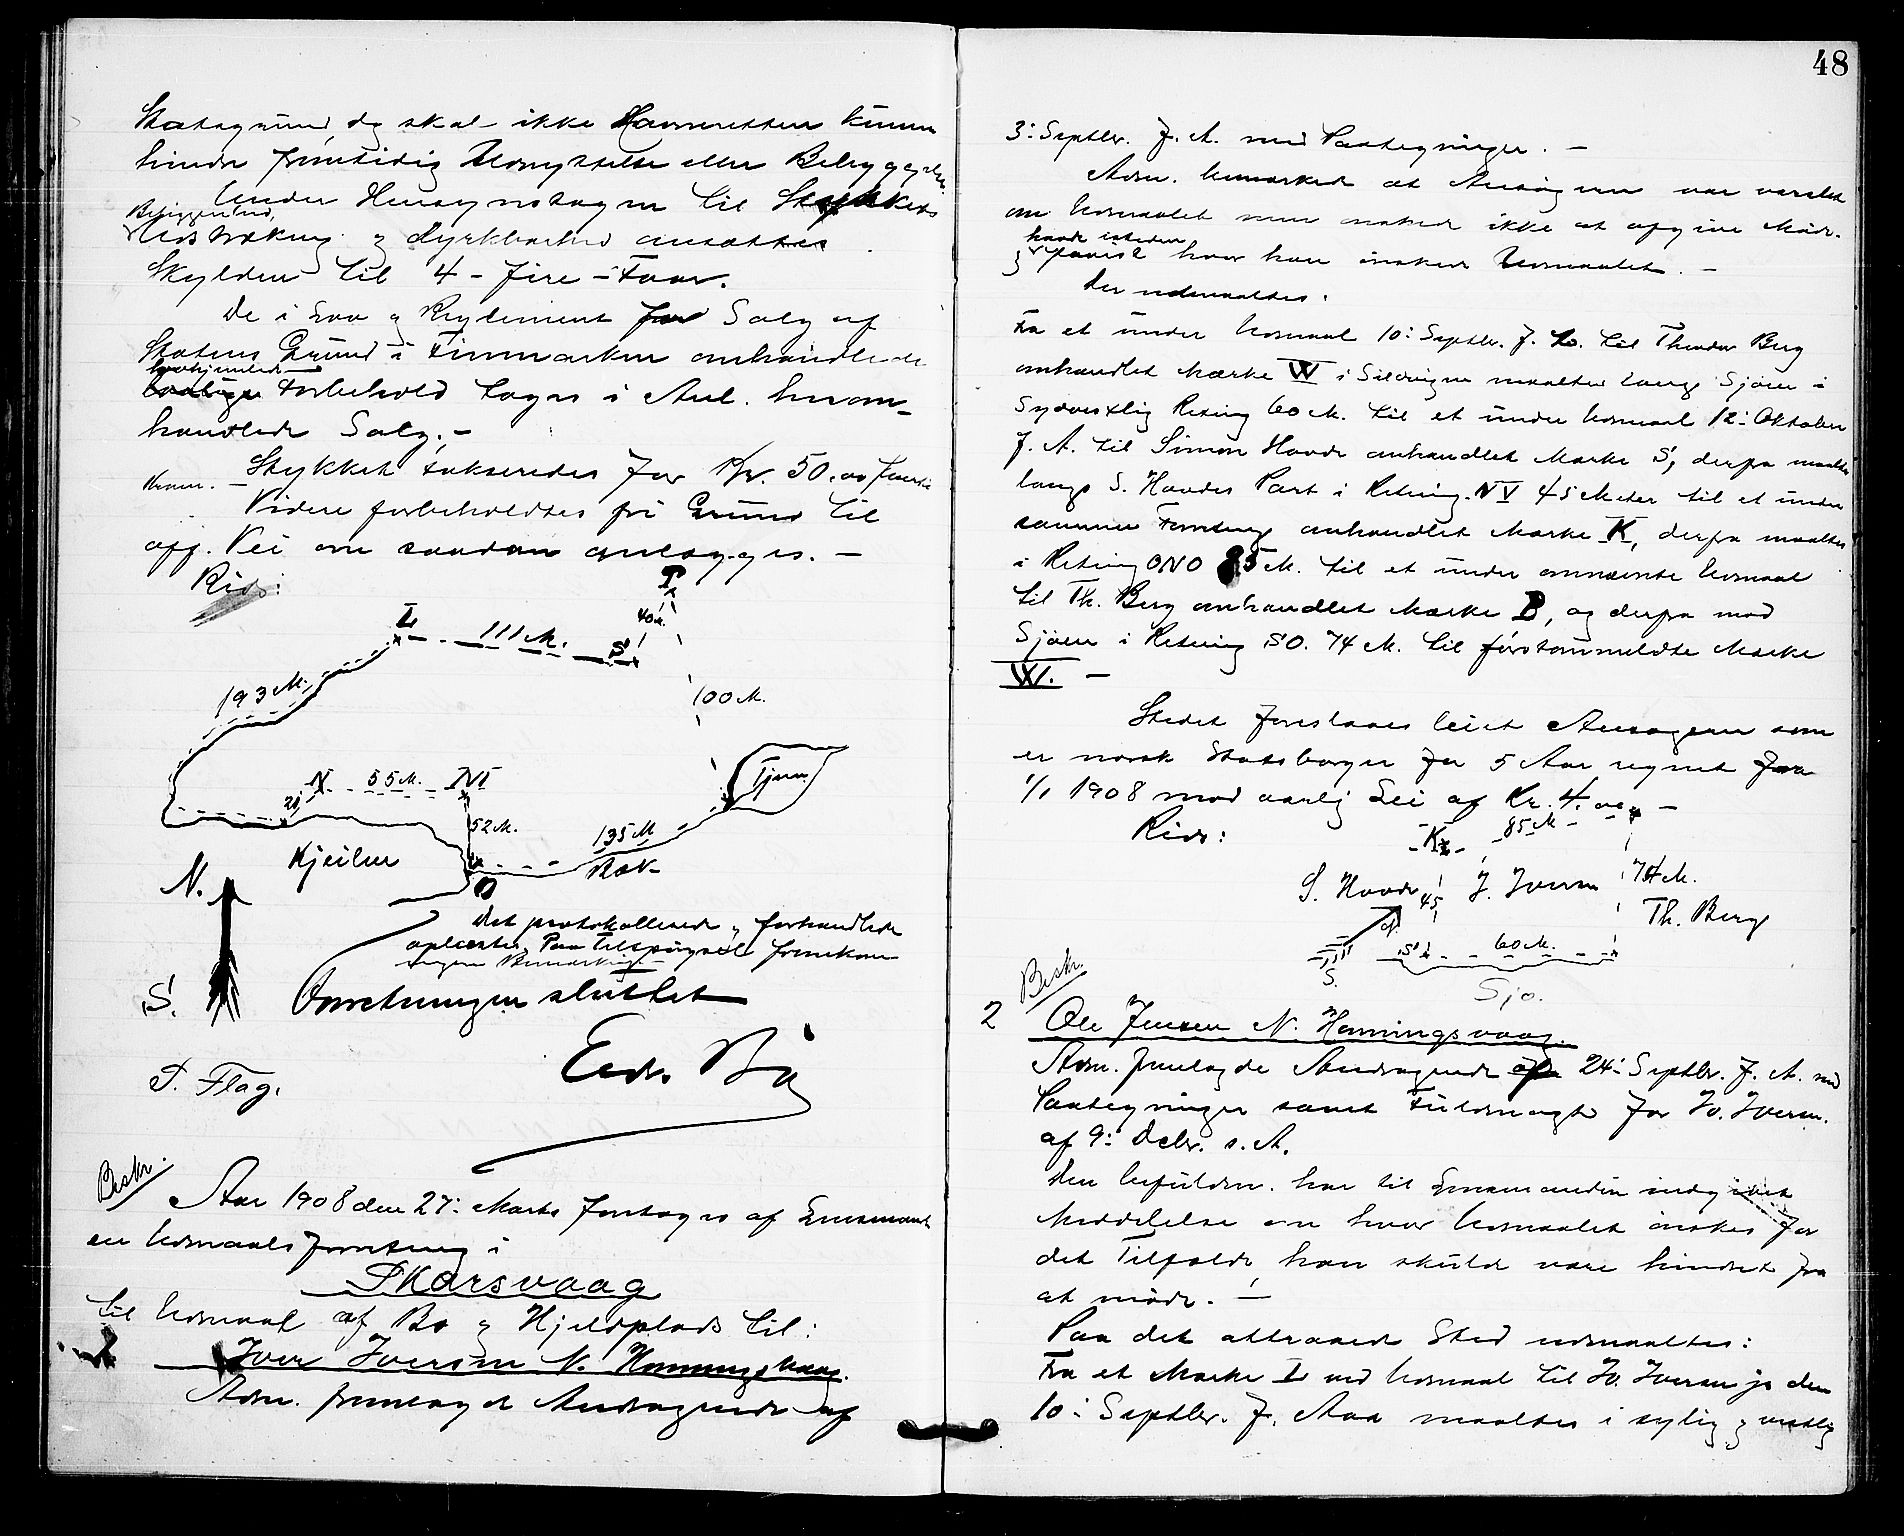 Statsgrund, dg skal ikke Havneretten kunne
hindre fremtidig Udnyttelse eller Bebyggelse.
Under Hensynstagen til Stykkets
Beliggenhed,
Udstrækning og dyrkbarhed ansættes
Skylden til 4 - fire - Øre.
De i Lov og Reglement for Salg af
Statens Grund i Finmarken omhandlede
Forbehold tages i Anl. heromhandlede
Salg. -
Stykket takseredes for Kr. 50.00 femti
Kroner. -
Videre forbeholdtes fri Grund til
off. Vei om saadan anlægges. -
Rids:
P
40 M.
L
111 M.
S
193 M.
100 M.
N
55 M.
M
20
52 M.
135 M
Tjern
Kjeilen
Bæk
O
N.
S.
Det protokollerede og forhandlede
oplæstes. Paa Tilspørgsel fremkom
ingen Bemærkning -
Forretningen sluttet
P. Flag.
Beskr.
Aar 1908 den 27: Marts foretoges af Lensmand
en Udmaalsforretning i
Skarsvaag
til Udmaal af Bo og Hjeldplads til:
1 Iver Iversen N. Honningsvaag.
Adm. fremlagde Andragende af
48
3: Septbr. f. A. med Paategninger. -
Adm. bemærked at Ansøgeren var varslet
om Udmaalet men ønsked ikke at afgive Møde
havde isteden
og paavist hvor han ønsked Udmaalet. -
Der udmaaltes:
Fra et under Udmaal 10: Septbr. f. A. til Theodor Berg
omhandlet Mærke W i Sildvigen maaltes langs Sjøen i
Sydvestlig Retning 60 M. til et under Udmaal 12: Oktober
f. A. til Simon Havde omhandlet Mærke S, derfra maaltes
langs S. Havdes Part i Retning NV 45 Meter til et under
samme Forretning omhandlet Mærke K, derfra maaltes
i Retning ONO 85 M. til et under omnævnte Udmaal
til Th. Berg omhandlet Mærke B, og derfra mod
Sjøen i Retning SO. 74 M. til førstommeldte Mærke
W. -
Stedet foreslaaes leiet Ansøgeren som
er norsk Statsborger for 5 Aar regnet fra
1/1 1908 mod aarlig Lei af Kr. 4.00 -
Rids:
K
85 M
S. Havde
45
I. Iversen
74 M.
Th. Berg
S
60 M.
S.
Sjø.
Beskr.
2 Ole Jensen N. Honningsvaag.
Adm. fremlagde Andragende af 24: Septbr. f. A. med
Paategninger samt Fuldmagt for Iv. Iversen
af 9: Decbr. s. A.
Den befuldm. har til Lensmanden indgivet
Meddelelse om hvor Udmaalet ønskes for
det Tilfælde han skulde være hindret fra
at møde. -
Paa det attraaede Sted udmaaltes:
Fra et Mærke L ved Udmaal til Iv. Iversen jr den
10: Septbr. f. Aar maaltes i sylig og vestlig